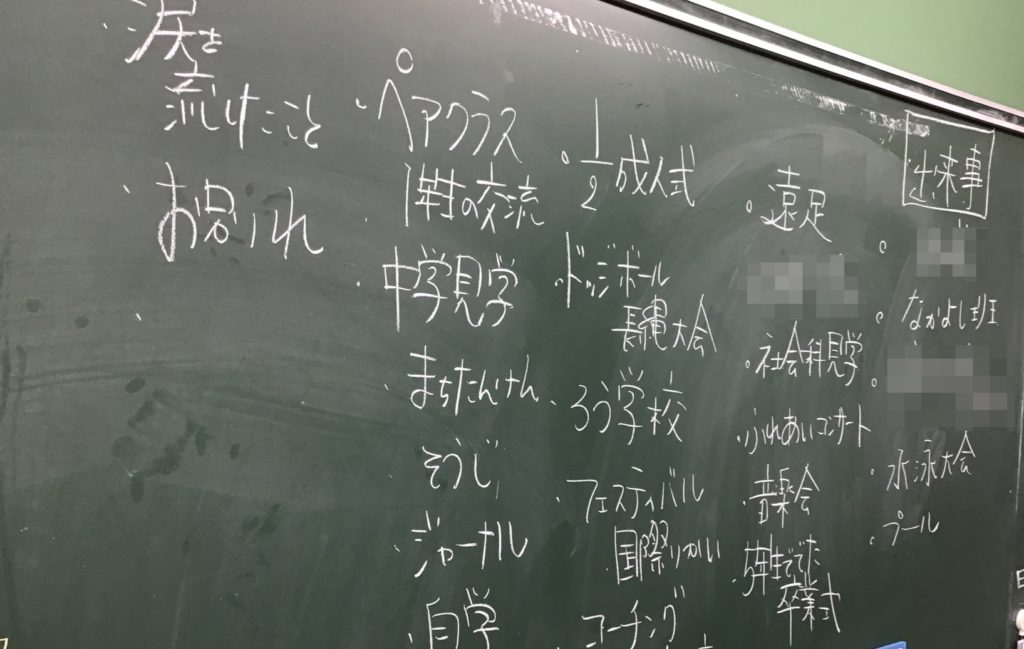 出来事
なかよし班
水泳大会
プール
遠足
社会科見学
ふれあいコンサート
音楽会
5年生ででた
卒業式
1/2成人式
ドッジボール
長縄大会
ろう学校
フェスティバル
国際りかい
コーチング
ペアクラス
1年生の交流
中学見学
まちたんけん
そうじ
ジャーナル
自学
涙を
流したこと
お別れ